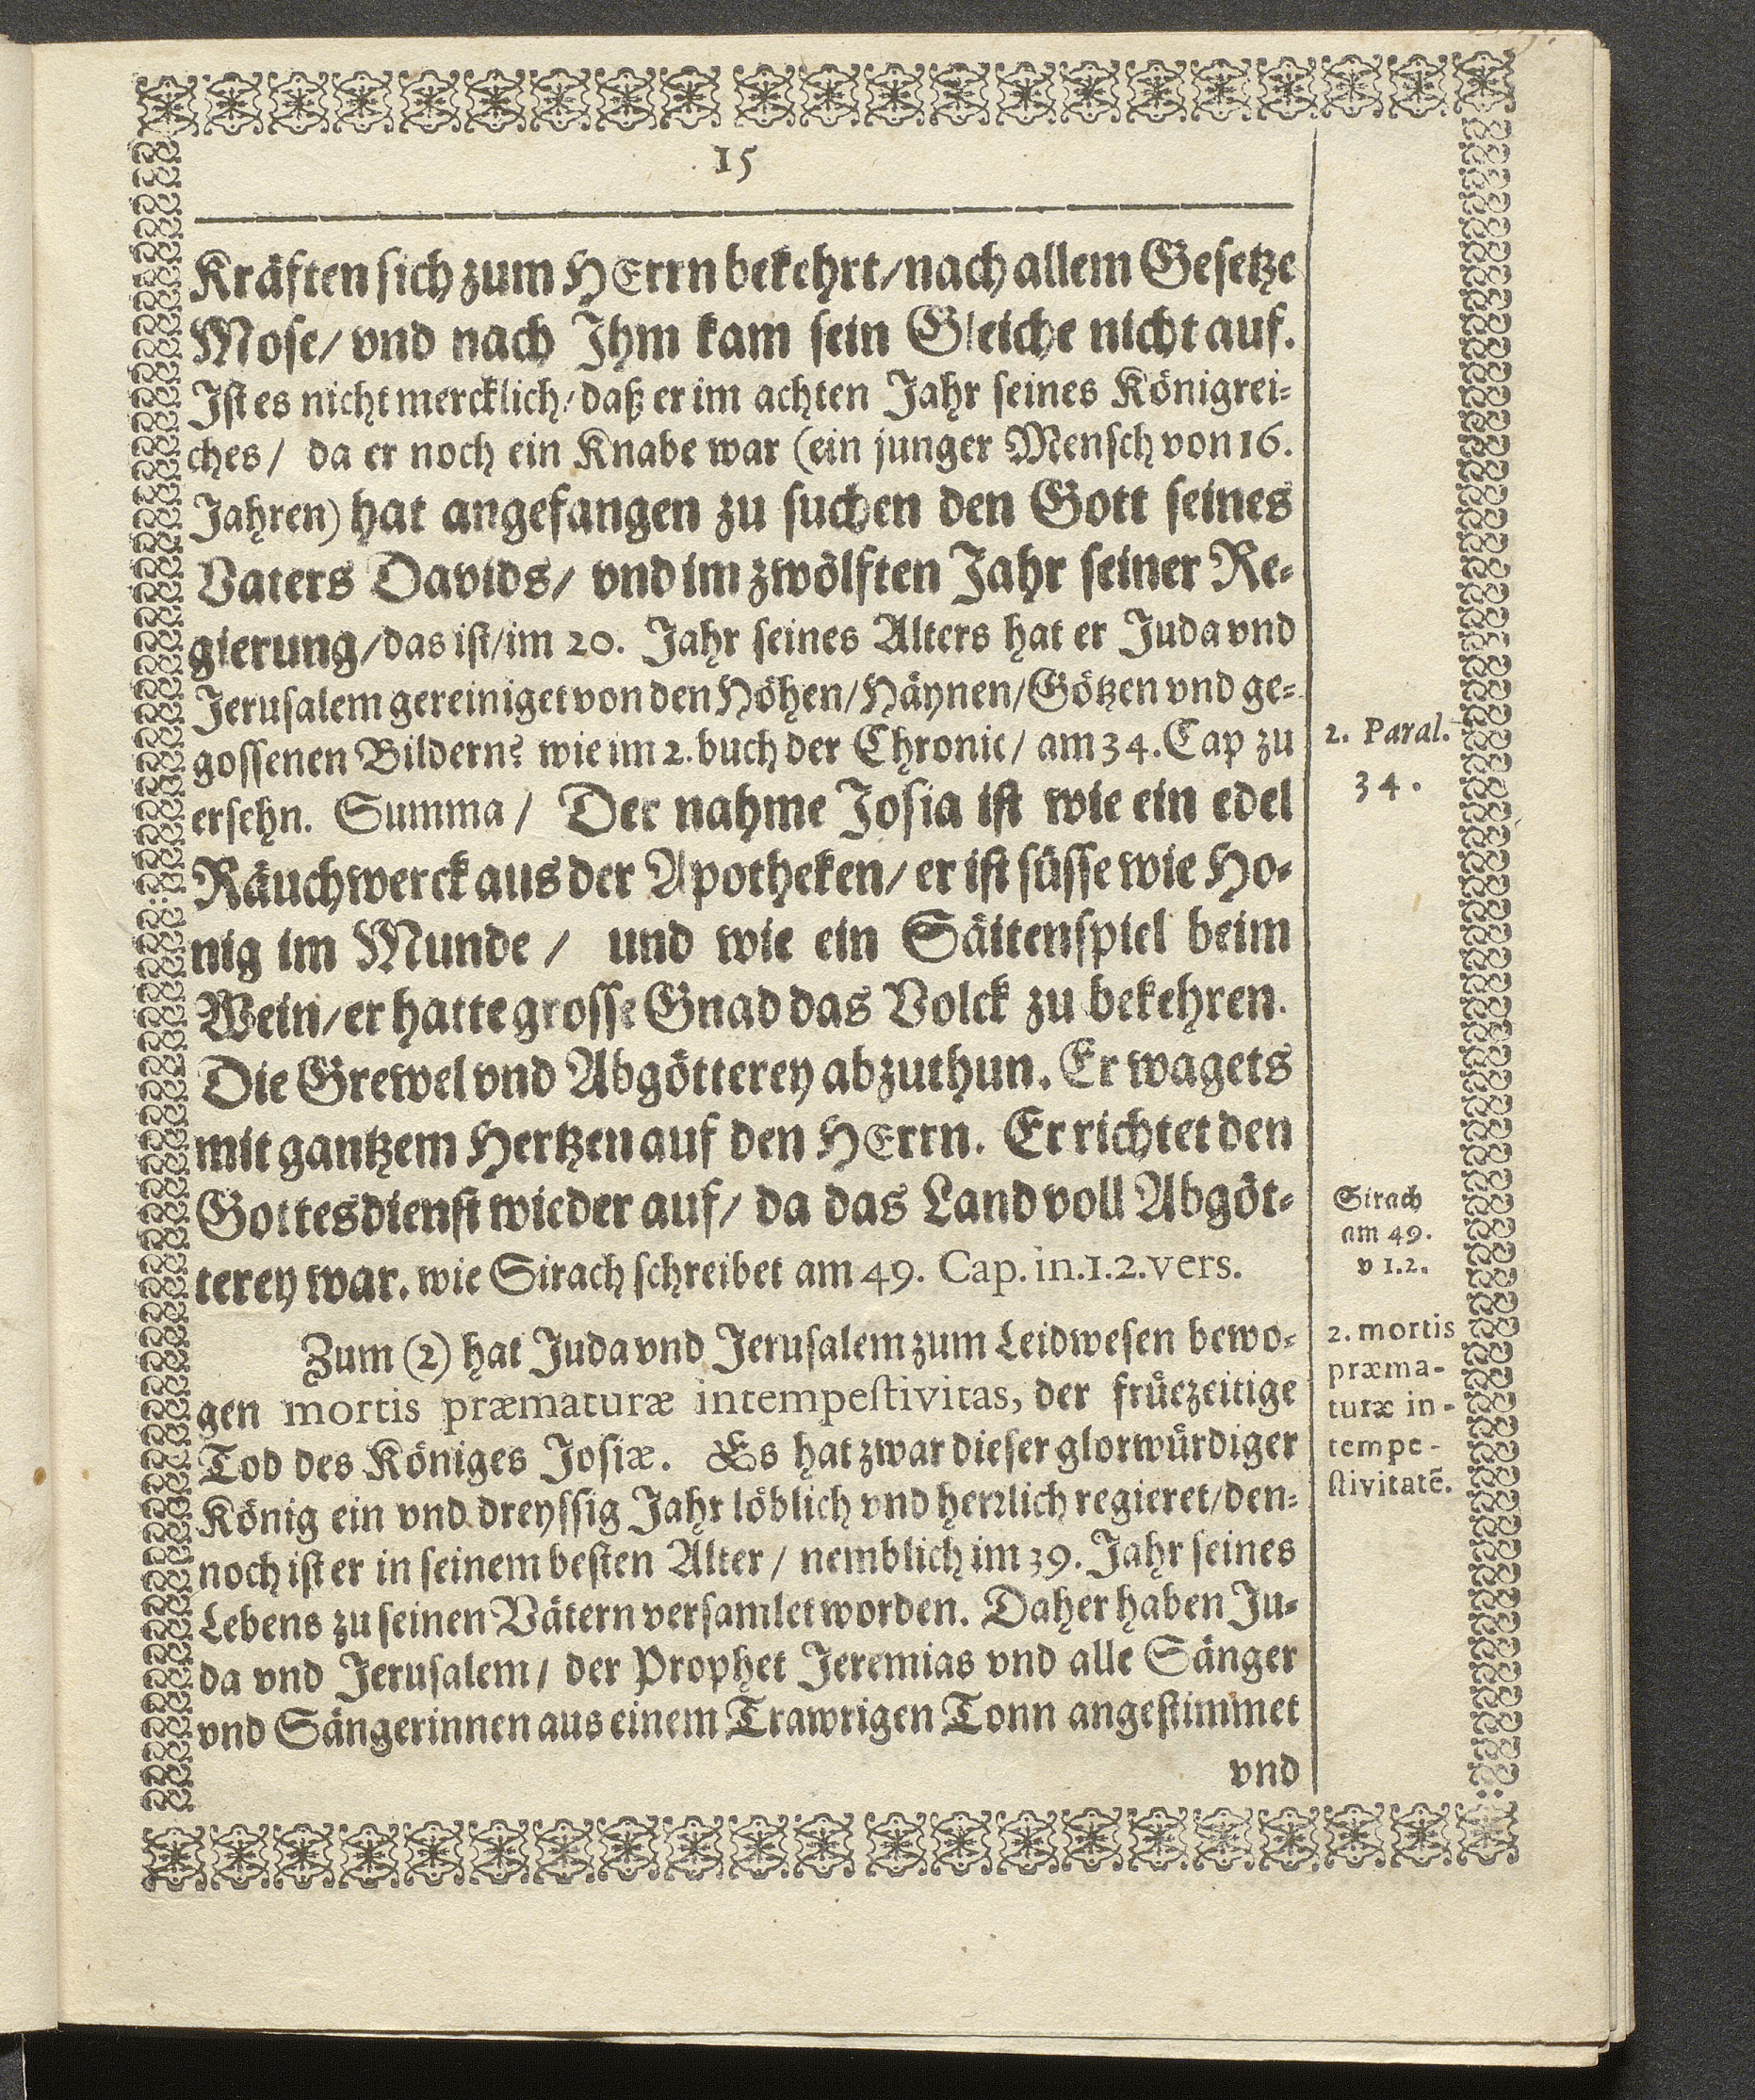 15
Kräften sich zum HErrn bekehrt/ nach allem Gesetze
Mose/ vnd nach Ihm kam sein Gleiche nicht auf.
Ist es nicht mercklich/ daß er im achten Jahr seines Königrei-
ches/ da er noch ein Knabe war (ein junger Mensch von 16.
Jahren) hat angefangen zu suchen den Gott seines
Vaters Davids/ vnd im zwölften Jahr seiner Re-
gierung/ das ist/ im 20. Jahr seines Alters hat er Juda vnd
Jerusalem gereiniget von den Höhen/ Häynen/ Götzen vnd ge-
gossenen Bildern? wie im 2. buch der Chronic/ am 34. Cap zu
2. Paral.
34.
ersehn. Summa/ Der nahme Josia ist wie ein edel
Räuchwerck aus der Apotheken/ er ist süsse wie Ho-
nig im Munde/ und wie ein Säitenspiel beim
Wein/ er hatte grosse Gnad das Volck zu bekehren.
Die Grewel vnd Abgötterey abzuthun. Er wagets
mit gantzem Hertzen auf den HErrn. Er richtet den
Gottesdienst wieder auf/ da das Land voll Abgöt-
terey war. wie Sirach schreibet am 49. Cap. in. 1. 2. vers.
Sirach
am 49.
v 1. 2.
Zum (2) hat Juda vnd Jerusalem zum Leidwesen bewo-
gen mortis præmaturæ intempestivitas, der früezeitige
Tod des Königes Josiæ. Es hat zwar dieser glorwürdiger
König ein vnd dreyssig Jahr löblich vnd herrlich regieret/ den-
2. mortis
præma-
turæ in-
tempe-
stivitatē.
noch ist er in seinem besten Alter/ nemblich im 39. Jahr seines
Lebens zu seinen Vätern versamlet worden. Daher haben Ju-
da vnd Jerusalem/ der Prophet Jeremias vnd alle Sänger
vnd Sängerinnen aus einem Trawrigen Tonn angestimmet
vnd